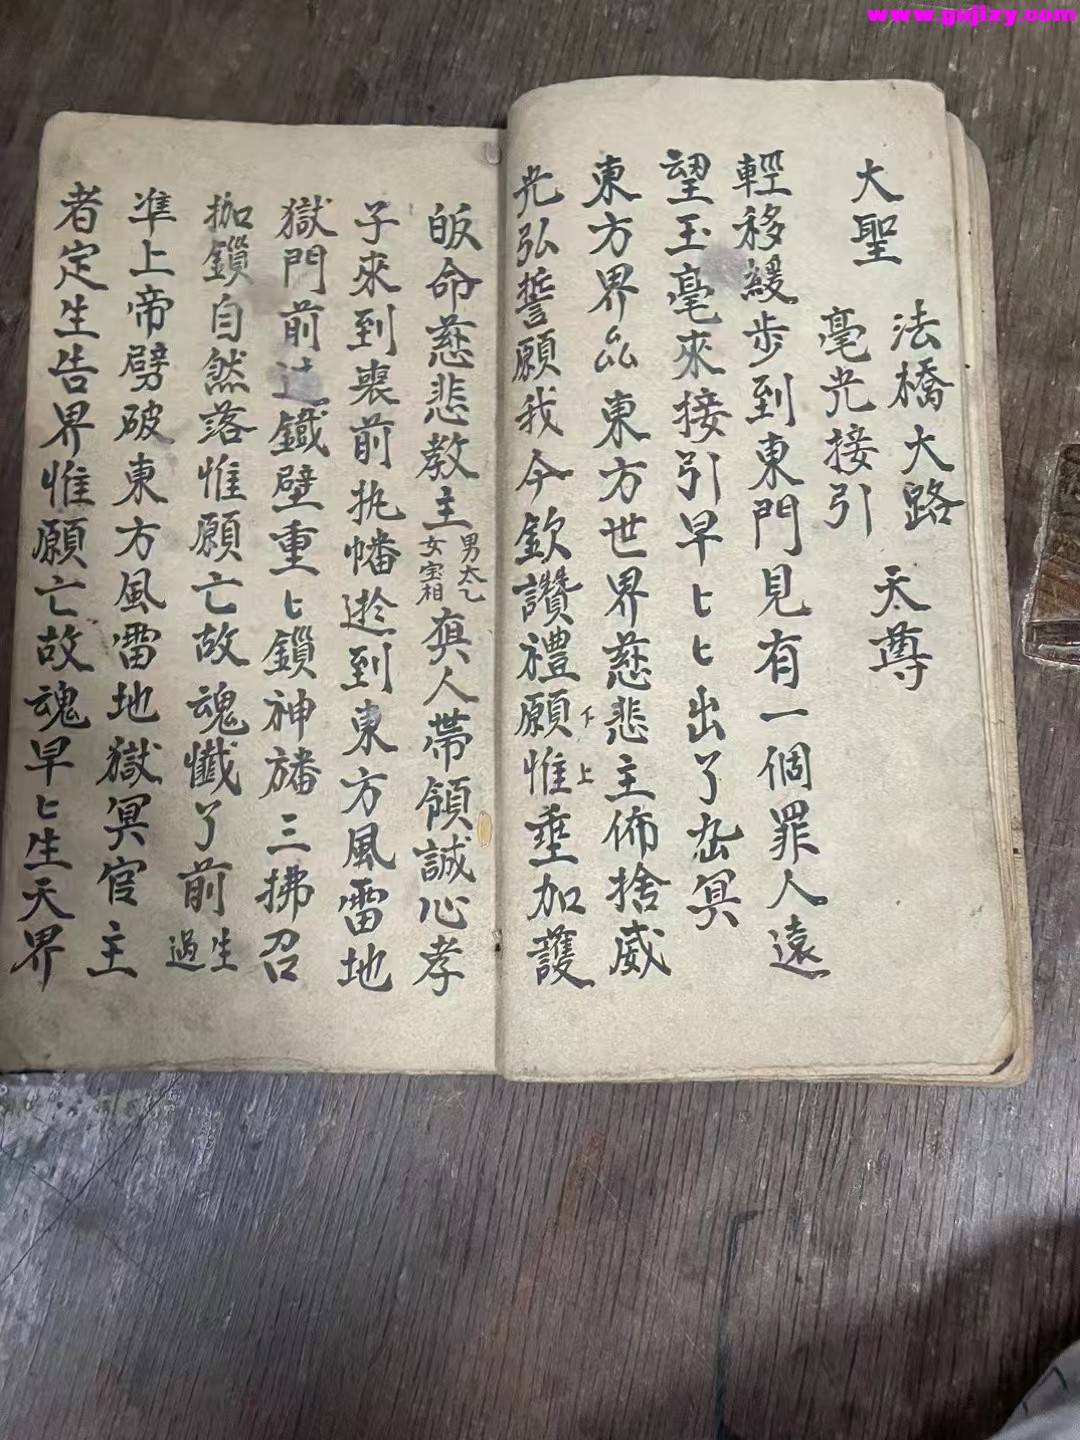 www.gujizy.com
大聖 法橋大路 毫光接引 天尊
輕移緩步到東門見有一個罪人遠
望玉毫來接引早匕匕出了出冥
東方界厸東方世界慈悲主佈捨威
光弘誓願我今欽讚禮願惟垂加護
下上
皈命慈悲教主男太乙女宝相真人帶領誠心孝
子來到喪前执幡逰到東方風雷地
獄門前過鐵壁重匕鎖神旛三拂召
枷鎖自然落惟願亡故魂懺了前生過
准上帝劈破東方風雷地獄冥官主
者定生告界惟願亡故魂早匕生天界